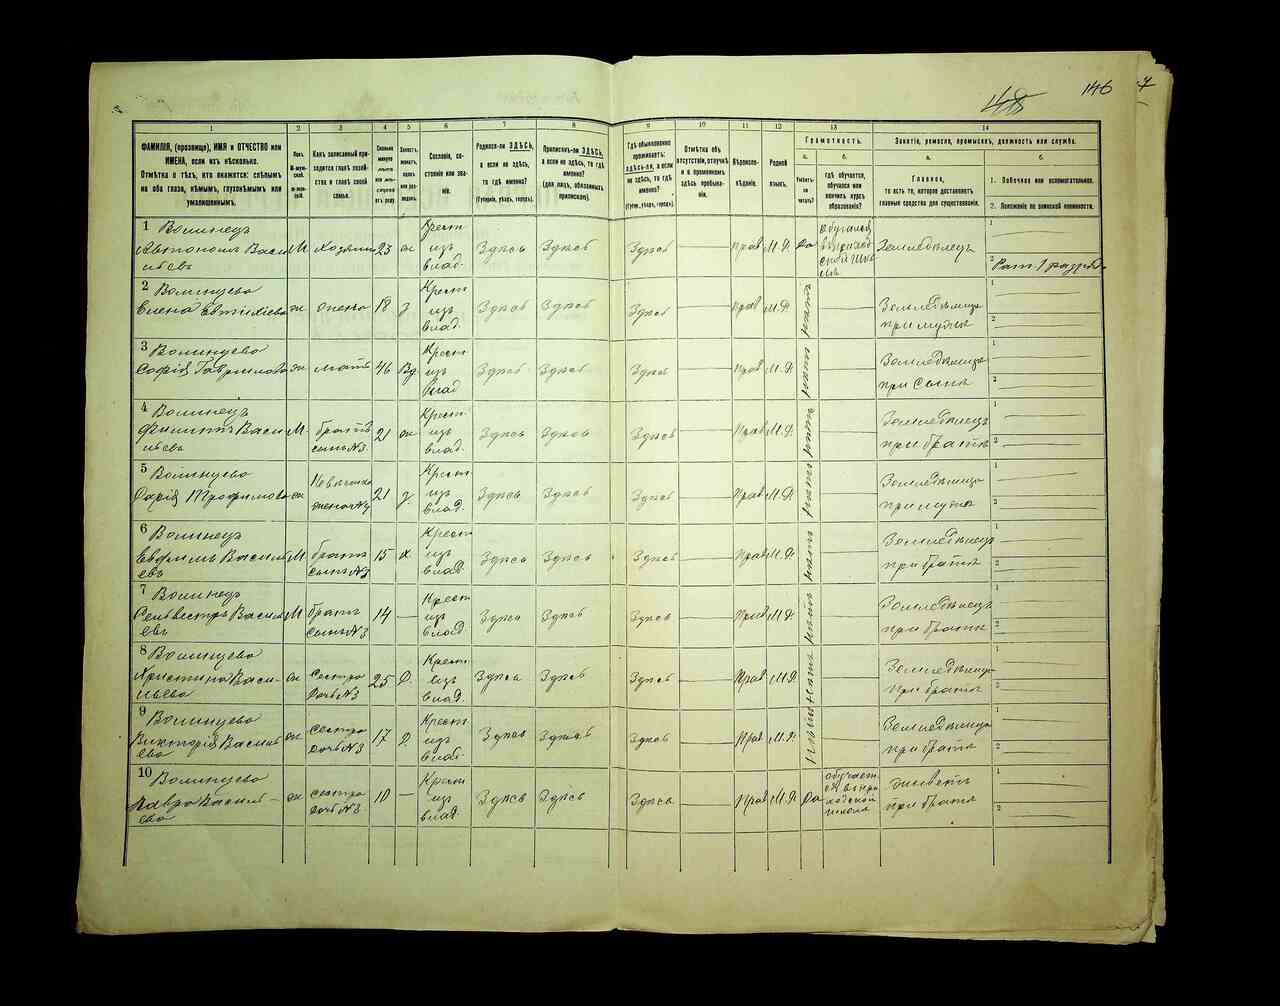 148
146
7
1
2
3
4
5
6
7
8
9
10
11
12
13
14
ФАМИЛІЯ, (прозвище), ИМЯ и ОТЧЕСТВО или
ИМЕНА, если ихъ нѣсколько.
Отмѣтка о тѣхъ, кто окажется: слѣпымъ
на оба глаза, нѣмымъ, глухонѣмымъ или
умалишеннымъ.
Полъ.
М-муж-
ской.
Ж-жен-
скій.
Какъ записанный при-
ходится главѣ хозяй-
ства и главѣ своей
семьи.
Сколько
минуло
лѣтъ
Холостъ,
женатъ,
вдовъ
или раз-
веденъ.
Сословіе, со-
стояніе или зва-
ніе.
Родился-ли ЗДѢСЬ,
а если не здѣсь,
то гдѣ именно?
(Губернія, уѣздъ, городъ).
Приписанъ-ли ЗДѢСЬ,
а если не здѣсь, то гдѣ
именно?
(для лицъ, обязанныхъ
припискою).
Гдѣ обыкновенно
проживаетъ:
здѣсь-ли, а если
не здѣсь, то гдѣ
именно?
(Губерн., уѣздъ, городъ).
Отмѣтка объ
отсутствіи, отлучкѣ
и о временномъ
здѣсь пребыва-
ніи.
Вѣроиспо-
вѣданіе.
Родной
языкъ.
Грамотность.
а.
Умѣетъ-
ли
читать?
б.
гдѣ обучается,
обучался или
кончилъ курсъ
образованія?
Занятіе, ремесло, промыселъ, должность или служба.
а.
Главное,
то есть то, которое доставляетъ
главныя средства для существованія.
б.
1. Побочное или вспомогательное.
2. Положеніе по воинской повинности.
1 Волинецъ
Автономъ Васи
льевъ
М
Хозяинъ
23
ж
Крест
изъ
влад.
Здѣсь
Здѣсь
Здѣсь
Прав
М.Р
Да
обучался
Земледѣлецъ
1
2 Рат. 1 разряд.
2 Волинцева
Елена Евтихіева
ж
жена
18
з
Крест
изъ
влад.
Здѣсь
Здѣсь
Здѣсь
Прав
М.Р
нѣтъ
Земледѣлица
при мужѣ
1
2
3 Волинцева
Софія Гаврилова
ж
мать
46
Вд
Крест
изъ
влад
Здѣсь
Здѣсь
Здѣсь
Прав
М.Р
нѣтъ
Земледѣлица
при сынѣ
1
2
4 Волинецъ
Филиппъ Васи
льевъ
М.
братъ
сынъ N3
21
ж
Крест.
изъ
влад.
Здѣсь
Здѣсь
Здѣсь
Прав
М.Р
нѣтъ
Земледѣлецъ
при братѣ
1
2
5 Волинцева
Софія Трофимова
ж
Невѣстка
жена N4
21
з.
Крест
изъ
влад.
Здѣсь
Здѣсь
Здѣсь
Прав
М.Р
нѣтъ
Земледѣлица
при мужѣ
1
2
6 Волинецъ
Евфимъ Василь
евъ
М
братъ
сынъ N3
15
х
Крест
изъ
влад.
Здѣсь
Здѣсь
Здѣсь
Прав
М.Р
нѣтъ
Земледѣлецъ
при братѣ
1
2
7 Волинецъ
Сельвестръ Василь
евъ
М
братъ
сынъ N3
14
Крест
изъ
влад
Здѣсь
Здѣсь
Здѣсь
Прав
М.Р
нѣтъ
Земледѣлецъ
при братѣ
1
2
8 Волинцева
Христина Васи-
льева
ж
сестра
дочь N3
25
д.
Крест
изъ
влад.
Здѣсь
Здѣсь
Здѣсь
Прав
М.Р
нѣтъ
Земледѣлица
при братѣ
1
2
9 Волинцева
Викторія Василь
ева
ж
сестра
дочь N3
17
д.
Крест
изъ
влад.
Здѣсь
Здѣсь
Здѣсь
Прав
М.Р
нѣтъ
Земледѣлица
при братѣ
1
2
10 Волинцева
Василь-
ева
ж
сестра
дочь N3
10
Крест
изъ
влад.
Здѣсь
Здѣсь
Здѣсь
Прав
М.Р
Да
обучает
школѣ
живетъ
при братѣ
1
2